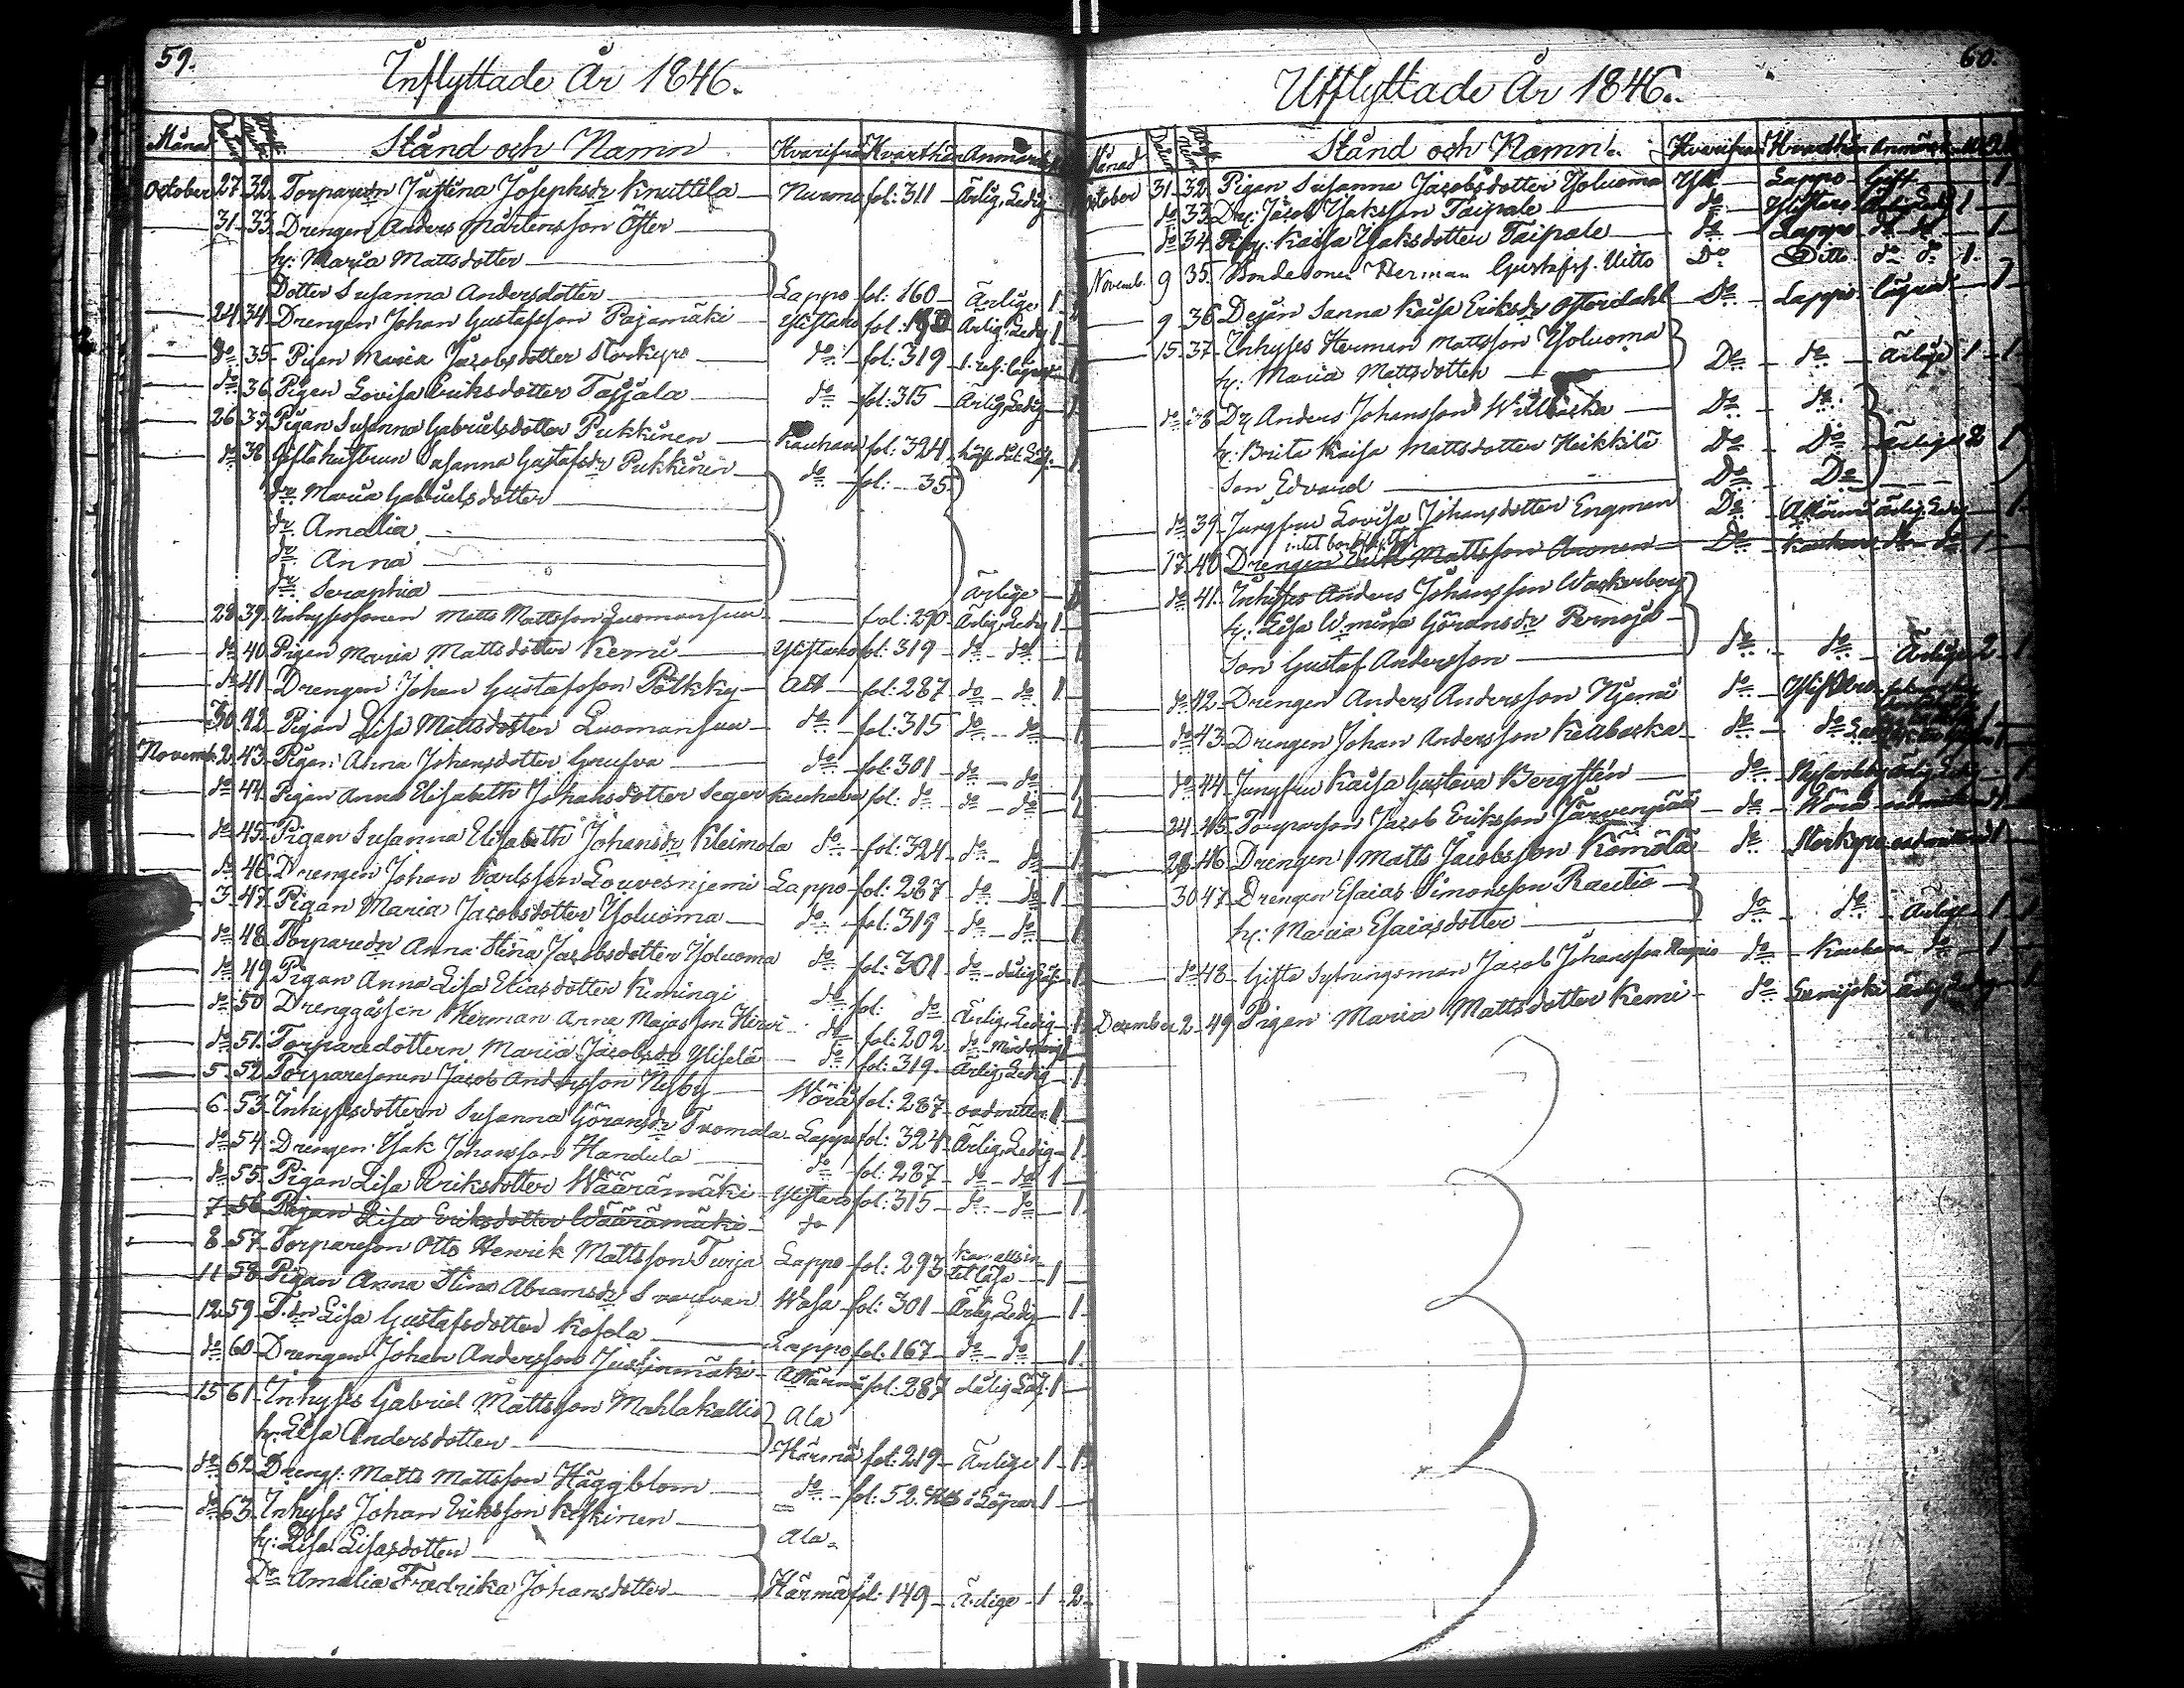 59.
Inflyttade År 1846.
Månad Stånd och Namn Hvarifrån Hvarthän Anmärk
October 27 32. Torparedr Justina Josephsdr Knuttila Nurmo fol: 311 Ärlig, Ledig
31 33. Drengen Anders Mårtensson Öster
h: Maria Mattsdotter
Dotter Susanna Andersdotter Lappo fol: 160 Ärlige 1
24 34 Drengen Johan Gustafsson Pajamäki Ylistaro fol: Ärlig, Ledig 1
do 35 Pigan Maria Jacobsdotter Storkyro do fol: 319
do 36 Pigan Lovisa Eriksdotter Passala do fol: 315 Ärlig, Ledig 1
26 37 Pigan Susanna Gabrielsdotter Pukkinen Kauhava fol: 324
do 38 Gifta hustrun Susanna Gustafsdr Pukkinen do fol: 35
dr Maria Gabrielsdotter
dr Amalia
dr Anna
dr Seraphia Ärlige
28 39 Inhysessonen Matts Mattsson Luomansuu fol: 290 Ärlig, Ledig 1
do 40 Pigan Maria Mattsdotter Kemi Ylistaro fol: 319 do do 1
do 41 Drengen Johan Gustafsson Pölkky Alt fol: 287 do do 1
30 42 Pigan Lisa Mattsdotter Luomansuu do fol: 315 do do 1
Novemb. 2 43 Pigan Anna Johansdotter do fol: 301 do do 1
do 44 Pigan Anna Elisabeth Johansdotter Seger Kauhava fol: do do do 1
do 45 Pigan Susanna Elisabeth Johansdr Kleimola do fol: 324 do do 1
do 46 Drengen Johan Carlsson Louvesnjemi Lappo fol: 287 do do 1
3 47 Pigan Maria Jacobsdotter Yoluoma do fol: 319 do do 1
do 48 Torparedr Anna Stina Jacobsdotter Yoluoma do fol: 301 do
do 49 Pigan Anna Lisa Eliasdotter Kimingi do fol: do Ärlig, Ledig 1
do 50 Drenggåssen Herman Anna Majasson Hirvi do fol: 202 do
do 51 Torparedottern Maria Jacobsdr Ylisela do fol: 319 Ärlig, Ledig 1
5 52 Torparesonen Jacob Andersson Nyby Wörå fol: 287 oadmitter. 1
6 53 Inhysesdottern Susanna Göransdr Tuomala Lappo fol: 324 Ärlig, Ledig 1
do 54 Drengen Isak Johansson Handula do fol: 287 do do 1
do 55 Pigan Lisa Eriksdotter Wäärämäki Ylistaro fol: 315 do do 1
7 56 Pigan Lisa Eriksdotter Wäärämäki do
8 57 Torpareson Otto Henrik Mattsson Turja Lappo fol: 293 kan alls in-
tet läsa 1
11 58 Pigan Anna Stina Abramsdr Svarfvar Wasa fol: 301 Ärlig, Ledig 1
12 59 T.dr Lisa Gustafsdotter Kosola Lappo fol: 167 do do 1
do 60 Drengen Johan Andersson Jussinmäki A Härmä fol: 287 dålig Läs. 1
15 61 Inhyses Gabriel Mattsson Mahlakallio Ala
h: Lisa Andersdotter Härmä fol: 219 Ärlige 1 1
do 62 Drengs: Matts Mattsson Häggblom do fol: 52. 1
do 63 Inhyses Johan Eriksson Keskinen
h: Lisa Lisasdotter Ala-
Dr Amalia Fredrika Johansdotter Härmä fol: 149 Ärlige 1 2
60.
Utflyttade År 1846.
Månad Stånd och Namn Hvarifrån Hvarthän Anmärk
October 31. 32. Pigan Susanna Jacobsdotter Yoluoma Lappo Gift 1
do 33 Dr: Jacob Isaksson Taipale do Ylistaro Ärlig Ledig 1
do 34 Pig: Kaisa Isaksdotter Taipale do Lappo do do 1
Novemb. 9 35. Bondesonen Herman Gustafss. Uitto Do Ditto do do 1
9 36 Dejan Sanna Kaisa Eriksdr Österdahl Do Lappo 1
15 37 Inhyses Herman Mattsson Yoluoma
h: Maria Mattsdotter Do do Ärlige 1 1
do 38 Dr Anders Johansson Do do
h: Brita Kaisa Mattsdotter Heikkilä Do Do Ärlige 2 1
Son Edvard Do Do
do 39 Jungfru Lovisa Johansdotter Engman Do A Härmä Ärlig, Ledig 1
17 40 Drengen Erik Mattsson Aronen Do Kauhava do do 1
do 41 Inhyses Anders Johansson Wackerberg
h: Lisa Wmina Göransdr Pernaja
Son Gustaf Andersson do do Ärlige 2 1
do 42 Drengen Anders Andersson Njemi do Ylistaro
do 43 Drengen Johan Andersson do do
do 44 Jungfru Kaisa Gustava Bergsten do Nykarleby Ärlig Ledig 1
24 45 Torparson Jacob Eriksson Järvenpää do Wörå oadmitterad 1
28 46 Drengen Matts Jacobsson Kömölä do Storkyro oadmitterad 1
30 47 Drengen Esaias Simonsson Rautio
h: Maria Esaiasdotter do do Ärlige 1 1
do 48 Gifte Sytningsman Jacob Johansson do Kauhava do 1
December 2 49 Pigan Maria Mattsdotter Kemi do Ärlig Ledig 1